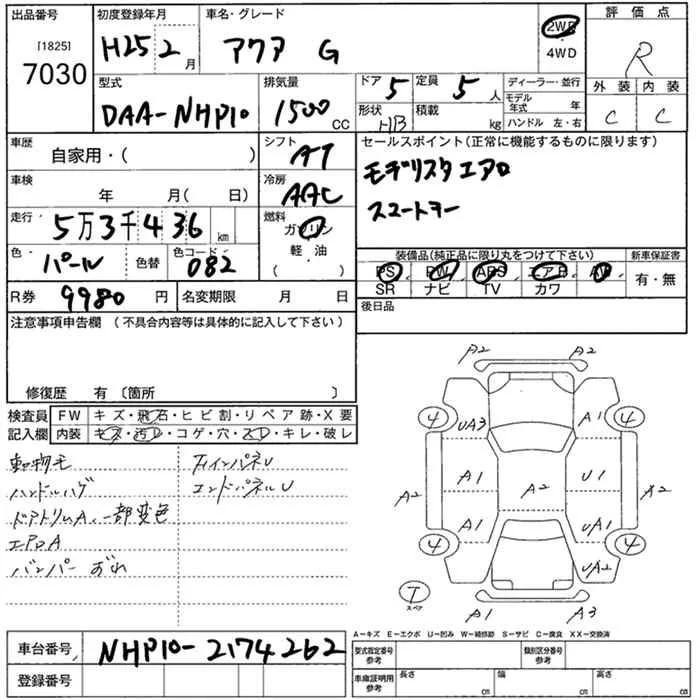 出品番号 初度登録年月 車名・グレード 評価点
[1825]
7030 H25 2月 アクア G 2WD R
4WD
型式 排気量 ドア 定員 ディーラー・並行 外装 内装
DAA-NHP10 1500CC 5 5人 モデル年式 年 C C
形状 HB 積載 kg ハンドル 左・右
車歴 シフト セールスポイント(正常に機能するものに限ります)
自家用・( ) AT モデリスタエアロ
車検 冷房 スマートキー
年 月( 日) AAC
走行 5万3千436km 燃料 ガソリン
軽・油
( )
色 パール 色替 色コード 082
装備品(純正品に限り丸をつけて下さい) 新車保証書
PS PW ABS エアB AW 有・無
SR ナビ TV カワ
R券 9980円 名変期限 月 日 後日品
注意事項申告欄(不具合内容等は具体的に記入して下さい)
修復歴 有〔箇所 〕
検査員 FW キズ・飛石・ヒビ割・リペア跡・X要
記入欄 内装 キズ・汚レ・コゲ・穴・スレ・キレ・破レ
動物毛 FインパネU
ハンドルハゲ エンドパネルU
ドアトリムA、一部変色
エアロA
バンパー おれ
A2 A2
4 UA3 A1 4
A1 U1
A2 A2 A2
A1 UA1
4 UA2 4
T
スペア
A1 A3
A-キズ E-エクボ U-凹み W-補修跡 S-サビ C-腐食 XX-交換済
車台番号 NHP10-2174262
登録番号
型式指定番号 参考 類別区分番号 参考
車庫証明用 参考 長さ cm 幅 cm 高さ cm